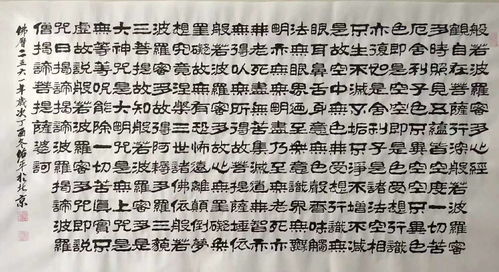 般若波羅蜜多心經
觀自在菩薩行深般若波羅蜜
多時照見五蘊皆空度一切苦
厄舍利子色不異空空不異色
色即是空空即是色受想行識
亦復如是舍利子是諸法空相
不生不滅不垢不淨不增不減
是故空中無色無受想行識無
眼耳鼻舌身意無色聲香味觸
法無眼界乃至無意識界無無
明亦無無明盡乃至無老死亦
無老死盡無苦集滅道無智亦
無得以無所得故菩提薩埵依
般若波羅蜜多故心無罣礙無
罣礙故無有恐怖遠離顛倒夢
想究竟涅槃三世諸佛依般若
波羅蜜多故得阿耨多羅三藐
三菩提故知般若波羅蜜多是
大神咒是大明咒是無上咒是
無等等咒能除一切苦真實不
虛故說般若波羅蜜多咒即說
咒曰揭諦揭諦波羅揭諦波羅
僧揭諦菩提薩婆訶
佛曆二五六一年歲次丁酉冬年於北京